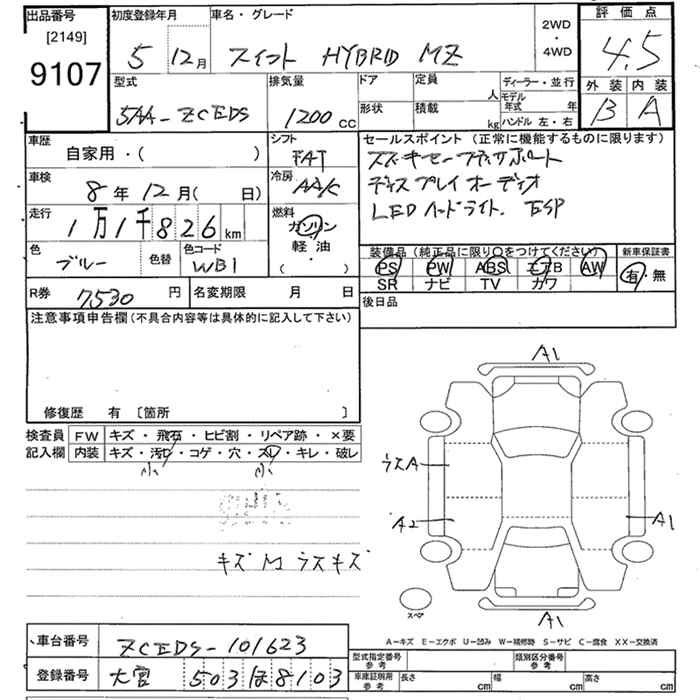 出品番号
[2149]
9107
初度登録年月
5 12月
車名・グレード
スイフト HYBRID MZ
2WD
・
4WD
評価点
4.5
外装 内装
B A
型式
5AA-ZCEDS
排気量
1200cc
ドア
形状
定員
人
積載
kg
ディーラー・並行
モデル年式 年
ハンドル 左・右
車歴
自家用・( )
シフト
FAT
車検
8年12月( 日)
冷房
AA/C
走行
1万1千826km
燃料
ガソリン
軽油・
( )
色
ブルー
色替
色コード
WB1
セールスポイント(正常に機能するものに限ります)
スズキセーフティサポート
ディスプレイオーディオ
LEDヘッドライト. ESP
装備品(純品品に限り○をつけてください)
PS PW ABS エアB AW
SR ナビ TV カワ
新車保証書
有・無
R券 7,530円
名変期限 月 日
後日品
注意事項申告欄(不具合内容等は具体的に記入して下さい)
修復歴 有 〔箇所 〕
検査員
記入欄
FW キズ・飛石・ヒビ割・リペア跡・×要
内装 キズ・汚れ・コゲ・穴・スレ・キレ・破レ
小 小
キズ M ラスキズ
A1
ラスA
A2
A1
スペア
A1
A-キズ E-エクボ U-凹み W-補修跡 S-サビ C-腐食 XX-交換済
車台番号 ZCEDS-101623
登録番号 大宮 503 ほ 8103
型式指定番号
参考
類別区分番号
参考
車庫証明用
参考
長さ cm 幅 cm 高さ cm